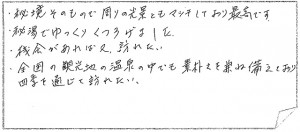 ・秘境そのもので周りの光景ともマッチしており最高です
・秘湯でゆっくりくつろげました
・機会があれば又、訪れたい。
・全国の観光地の温泉の中でも素朴さを兼ね備えており
四季を通じて訪れたい。